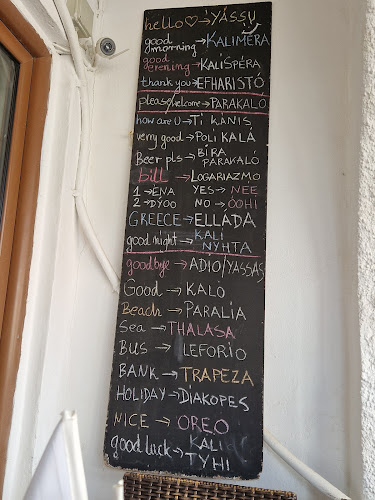 hello ♡ → YÁSSU
good morning → KALIMÉRA
good evening → KALISPÉRA
thank you → EFHARISTÓ
please/welcome → PARAKALO
how are U → Ti KANIS
verry good → POLI KALÁ
Beer pls → BIRA PARAKALO
bill → LOGARIAZMO
1 → ENA YES → NEE
2 → DYOO NO → ÓOHI
GREECE → ELLÁDA
good night → KALI NYHTA
goodbye → ADIO/YASSAS
Good → KALÓ
Beach → PARALIA
Sea → THALASA
BUS → LEFORIO
BANK → TRAPEZA
HOLIDAY → DIAKOPES
NICE → OREO
good luck → KALI TYHI